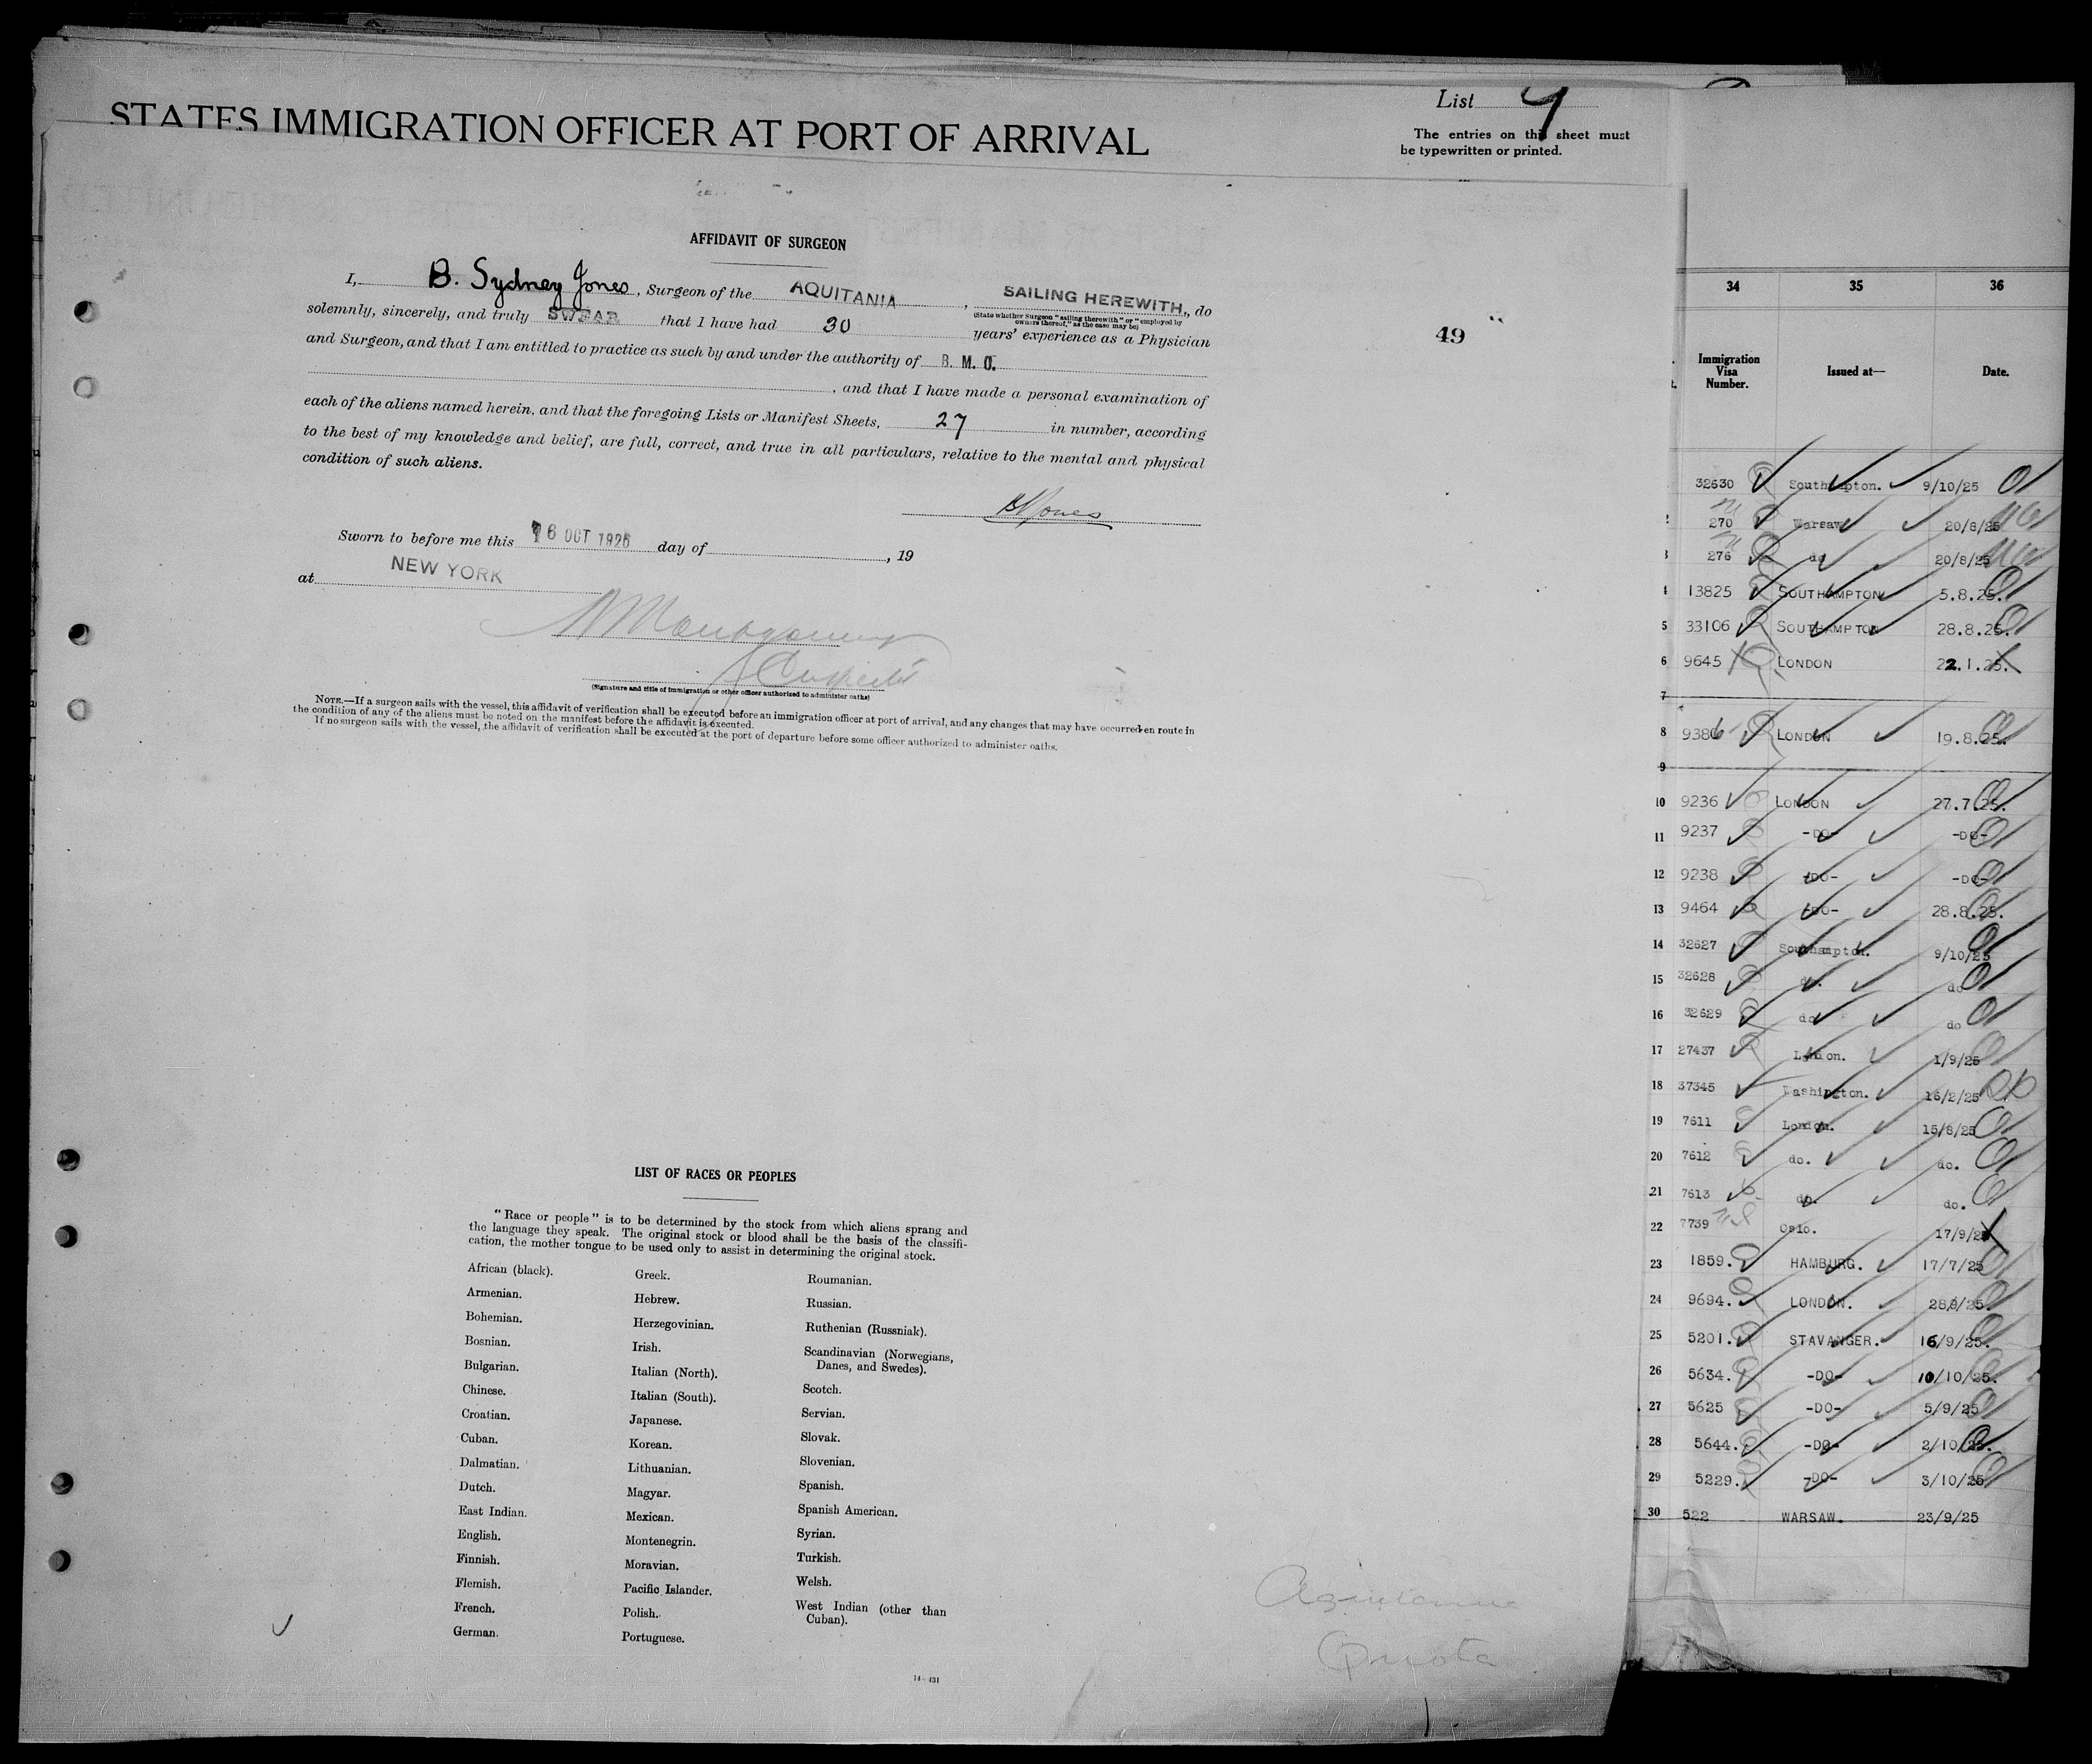 STATES IMMIGRATION OFFICER AT PORT OF ARRIVAL
List 9
The entries on this sheet must
be typewritten or printed.
AFFIDAVIT OF SURGEON
I, B. Sydney Jones, Surgeon of the AQUITANIA, SAILING HEREWITH, do
(State whether Surgeon "sailing therewith" or "employed by
owners thereof," as the case may be)
solemnly, sincerely, and truly SWEAR that I have had 30 years' experience as a Physician
and Surgeon, and that I am entitled to practice as such by and under the authority of B. M. O.
, and that I have made a personal examination of
each of the aliens named herein, and that the foregoing Lists or Manifest Sheets, 27 in number, according
to the best of my knowledge and belief, are full, correct, and true in all particulars, relative to the mental and physical
condition of such aliens.
Jones
Sworn to before me this 16 OCT 1925 day of , 19
at NEW YORK
(Signature and title of immigration or other officer authorized to administer oaths)
NOTE.—If a surgeon sails with the vessel, this affidavit of verification shall be executed before an immigration officer at port of arrival, and any changes that may have occurred en route in
the condition of any of the aliens must be noted on the manifest before the affidavit is executed.
If no surgeon sails with the vessel, the affidavit of verification shall be executed at the port of departure before some officer authorized to administer oaths.
49
LIST OF RACES OR PEOPLES
"Race or people" is to be determined by the stock from which aliens sprang and
the language they speak. The original stock or blood shall be the basis of the classifi-
cation, the mother tongue to be used only to assist in determining the original stock.
African (black).
Armenian.
Bohemian.
Bosnian.
Bulgarian.
Chinese.
Croatian.
Cuban.
Dalmatian.
Dutch.
East Indian.
English.
Finnish.
Flemish.
French.
German.
Greek.
Hebrew.
Herzegovinian.
Irish.
Italian (North).
Italian (South).
Japanese.
Korean.
Lithuanian.
Magyar.
Mexican.
Montenegrin.
Moravian.
Pacific Islander.
Polish.
Portuguese.
Roumanian.
Russian.
Ruthenian (Russniak).
Scandinavian (Norwegians,
Danes, and Swedes).
Scotch.
Servian.
Slovak.
Slovenian.
Spanish.
Spanish American.
Syrian.
Turkish.
Welsh.
West Indian (other than
Cuban).
14—431
Aquitania
Quota
34 35 36
Immigration
Visa
Number.
Issued at—
Date.
32630 Southampton. 9/10/25
2 270 Warsaw 20/8/25
3 276 do 20/8/25
4 13825 SOUTHAMPTON 5.8.25.
5 33106 SOUTHAMPTON 28.8.25.
6 9645 LONDON 22.1.25.
7
8 9386 LONDON 19.8.25.
9
10 9236 LONDON 27.7.25.
11 9237 -DO- -DO-
12 9238 -DO- -DO-
13 9464 -DO- 28.8.25.
14 32627 Southampton. 9/10/25
15 32628 do. do
16 32629 do do
17 27437 London. 1/9/25
18 37345 Washington. 16/2/25
19 7611 London. 15/8/25
20 7612 do. do.
21 7613 do. do.
22 7739 Oslo. 17/9/25
23 1859. HAMBURG. 17/7/25
24 9694. LONDON. 28/9/25.
25 5201. STAVANGER. 16/9/25.
26 5634. -DO- 10/10/25.
27 5625 -DO- 5/9/25
28 5644. -DO- 2/10/25.
29 5229. -DO- 3/10/25
30 522 WARSAW. 23/9/25